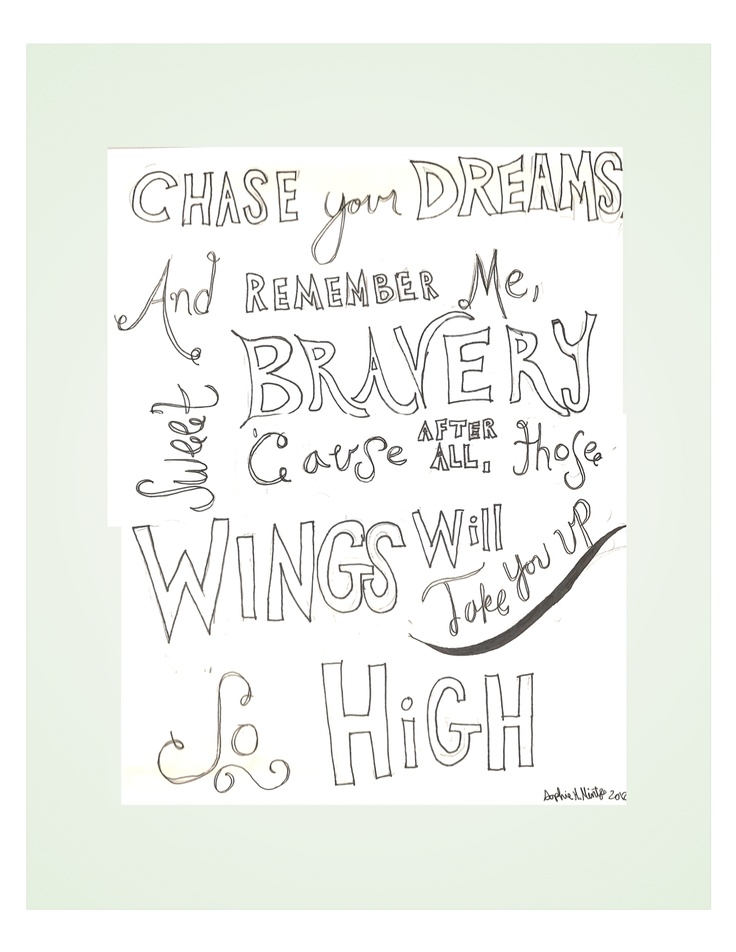 CHASE your DREAMS,
And REMEMBER Me,
Sweet BRAVERY
'Cause AFTER ALL, those
WINGS Will Take You UP
So HiGH
Sophie